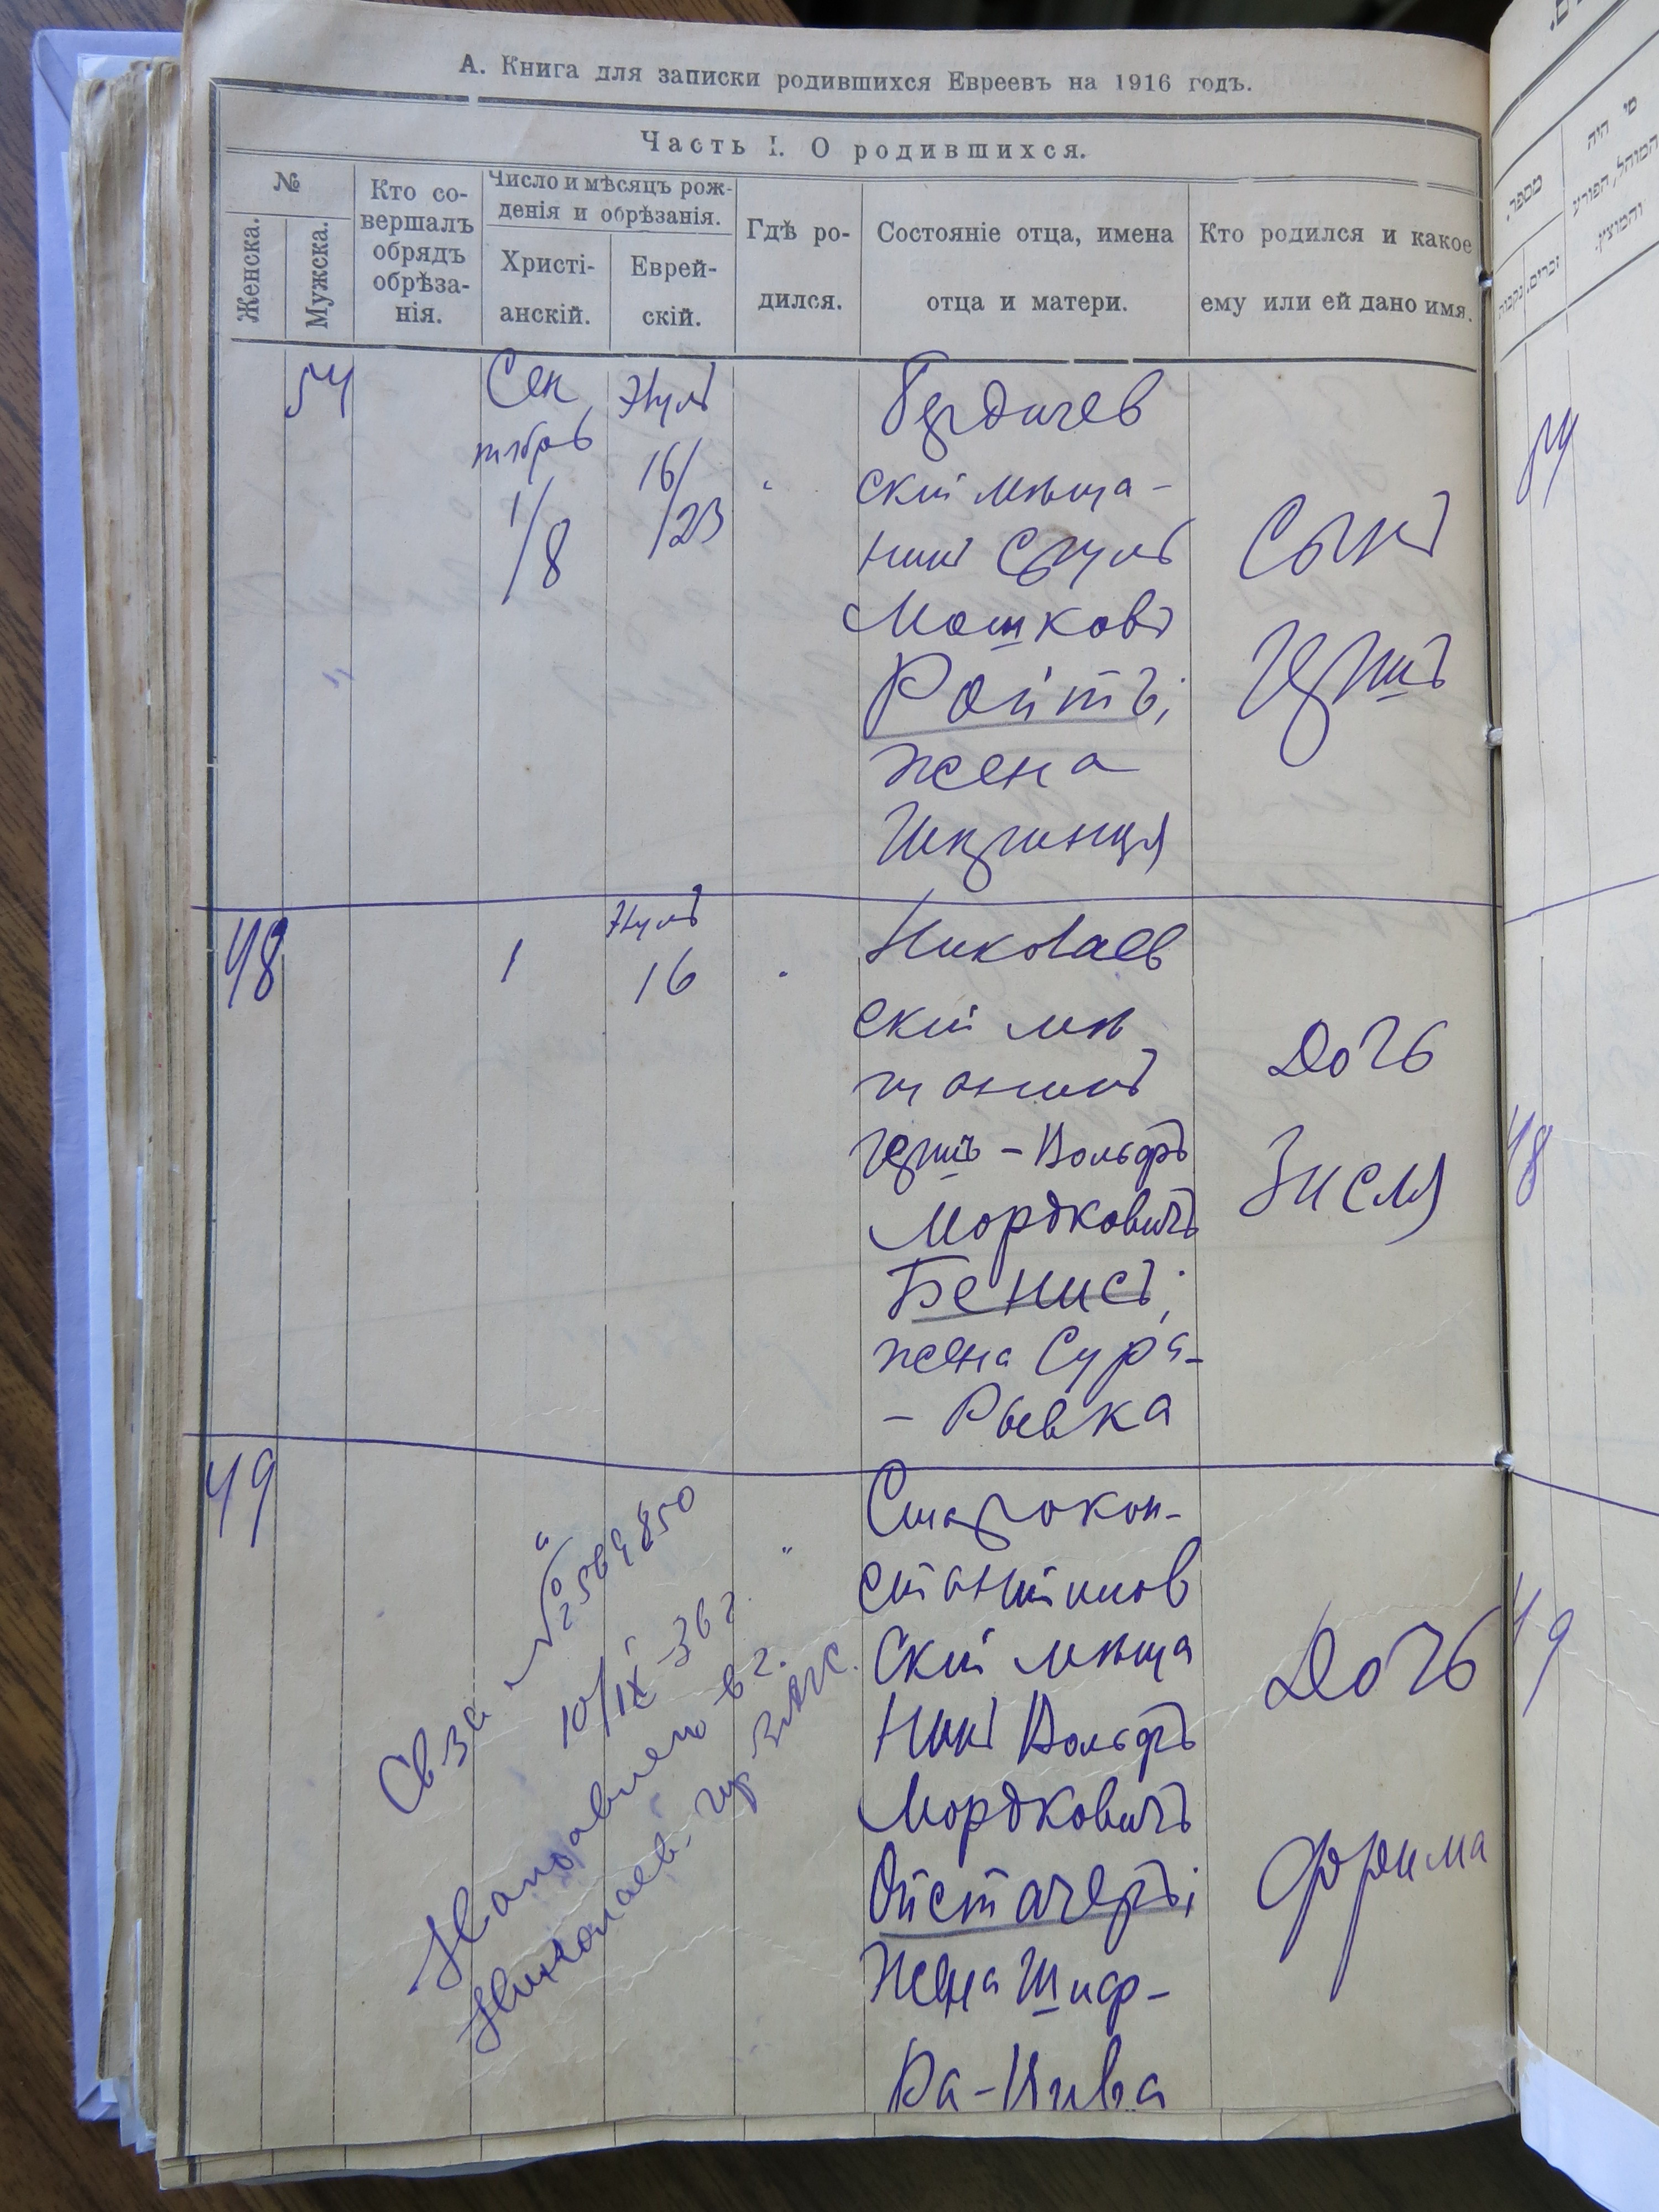 А. Книга для записки родившихся Евреевъ на 1916 годъ.
Часть I. О родившихся.
№
Женска.
Мужска.
Кто со-
вершалъ
обрядъ
обрѣза-
нія.
Число и мѣсяцъ рож-
денія и обрѣзанія.
Христі-
анскій.
Еврей-
скій.
Гдѣ ро-
дился.
Состояніе отца, имена
отца и матери.
Кто родился и какое
ему или ей дано имя.
54
Сен
тября
1/8
Элулъ
16/23
"
Бердичев
скій мѣща-
нинъ Сруль
Мошковъ
Ройтъ;
жена
Шпринця
Сынъ
Гершъ
48
1
Элулъ
16
"
Николаев
скій мѣ
щанинъ
Гершъ - Вольфъ
Мордковичъ
Бенисъ;
жена Сура-
- Рывка
Дочь
Зисля
49
"
"
Старокон-
стантинов
скій мѣща
нинъ Вольфъ
Мордковичъ
Ойстачеръ;
жена Шиф-
ра-Цива
Дочь
Фрима
Св за № 2569850
10/IX-36 г.
Направлено в г.
Николаев. гор ЗАГС.
מספר.
זכרים.
נקבות
מי היה
המוהל, הפורע
והמוצץ.
54
48
49